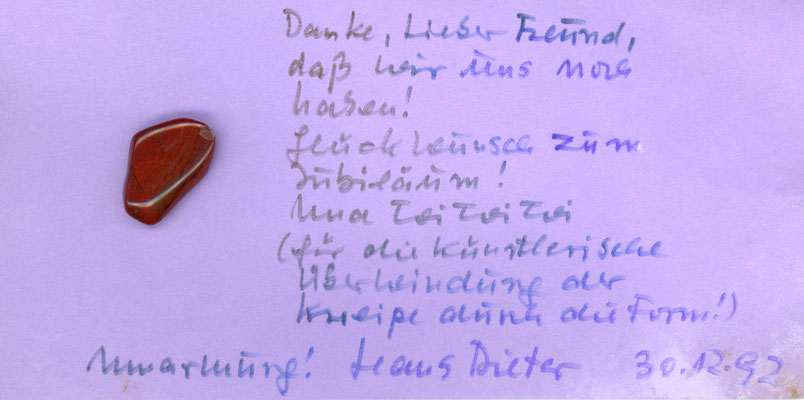 Danke, Lieber Freund,
daß wir uns noch
haben!
Glückwunsch zum
Jubiläum!
Und Toi Toi Toi
(für die künstlerische
Überwindung der
Kneipe durch die Form!)
Umarmung! Hans Dieter 30.12.92